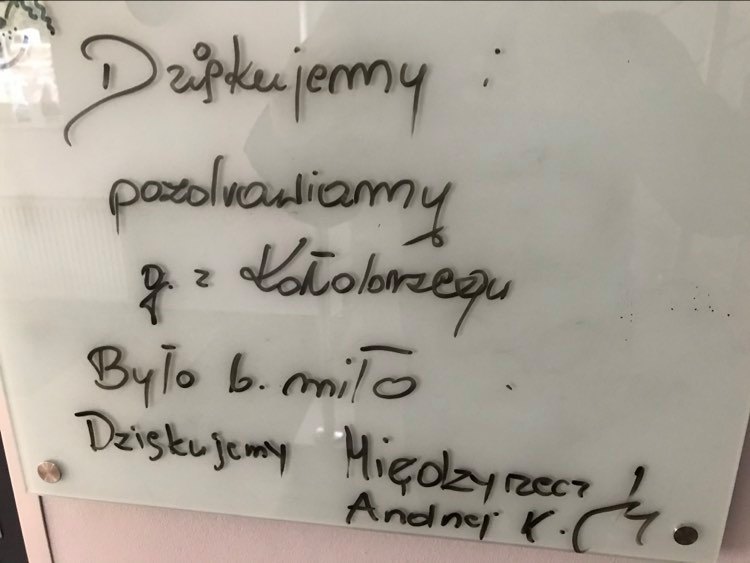 Dziękujemy i
pozdrawiamy
g. z Kołobrzegu
Było b. miło
Dziękujemy Międzyrzecz !
Andrzej K.